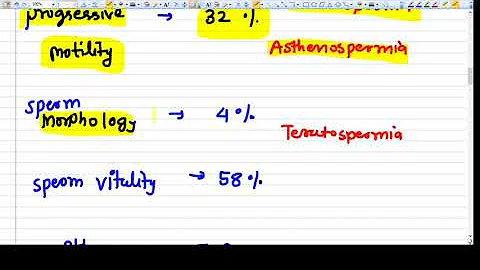 progressive → 32 %
motility
Asthenospermia
sperm
morphology → 4%
Teratospermia
sperm vitality → 58%